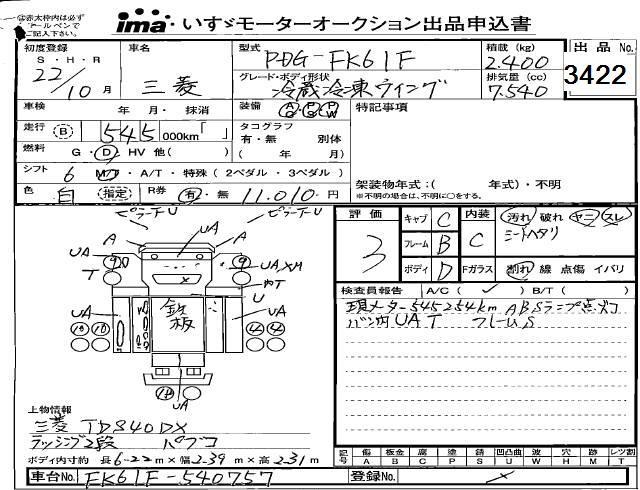 ②赤太枠内は必ず
ボールペンで
ご記入下さい。
ima いすゞモーターオークション出品申込書
初度登録 車名 型式 PDG-FK61F 積載(kg) 2.400 出品No.
S・H・R 22/10月 三菱 グレード・ボディ形状 冷蔵冷凍ウイング 排気量(cc) 7.540 3422
車検 年 月・抹消 装備 AC PS PW 特記事項
走行 B 545 000km「 」 タコグラフ 有・無 別体
燃料 G・D・HV 他( ) ( 年 月)
シフト 6 M/T・A/T・特殊(2ペダル・3ペダル) 架装物年式:( 年式)・不明
色 白 指定 R券 有・無 11.010円 ※不明の場合は、不明に○をする。
ピラーナU ピラーナU
A UA A
UA 9 9 UA,XH
T UT
U
UA UA
鉄板
10 10 4 4
UA
評価 3 キャブ C 内装 C 汚れ 破れ ヤニ スレ
フレーム B シートヘタリ
ボディ D Fガラス 割れ 線 点傷 イバリ
検査員報告 A/C( ✓ ) B/T( )
現メーター545254km ABSランプ点灯
バン内UAT フレームS
上物情報
三菱 TDS40DX
ラッシング2段 パブコ
ボディ内寸約 長6-22m×幅2.39m×高2.31m
記号 傷A 板金B 腐C 凸P 塗T 錆S 凹凸曲U 波W 穴H 跡M レツ割
車台No. FK61F-540757 登録No.